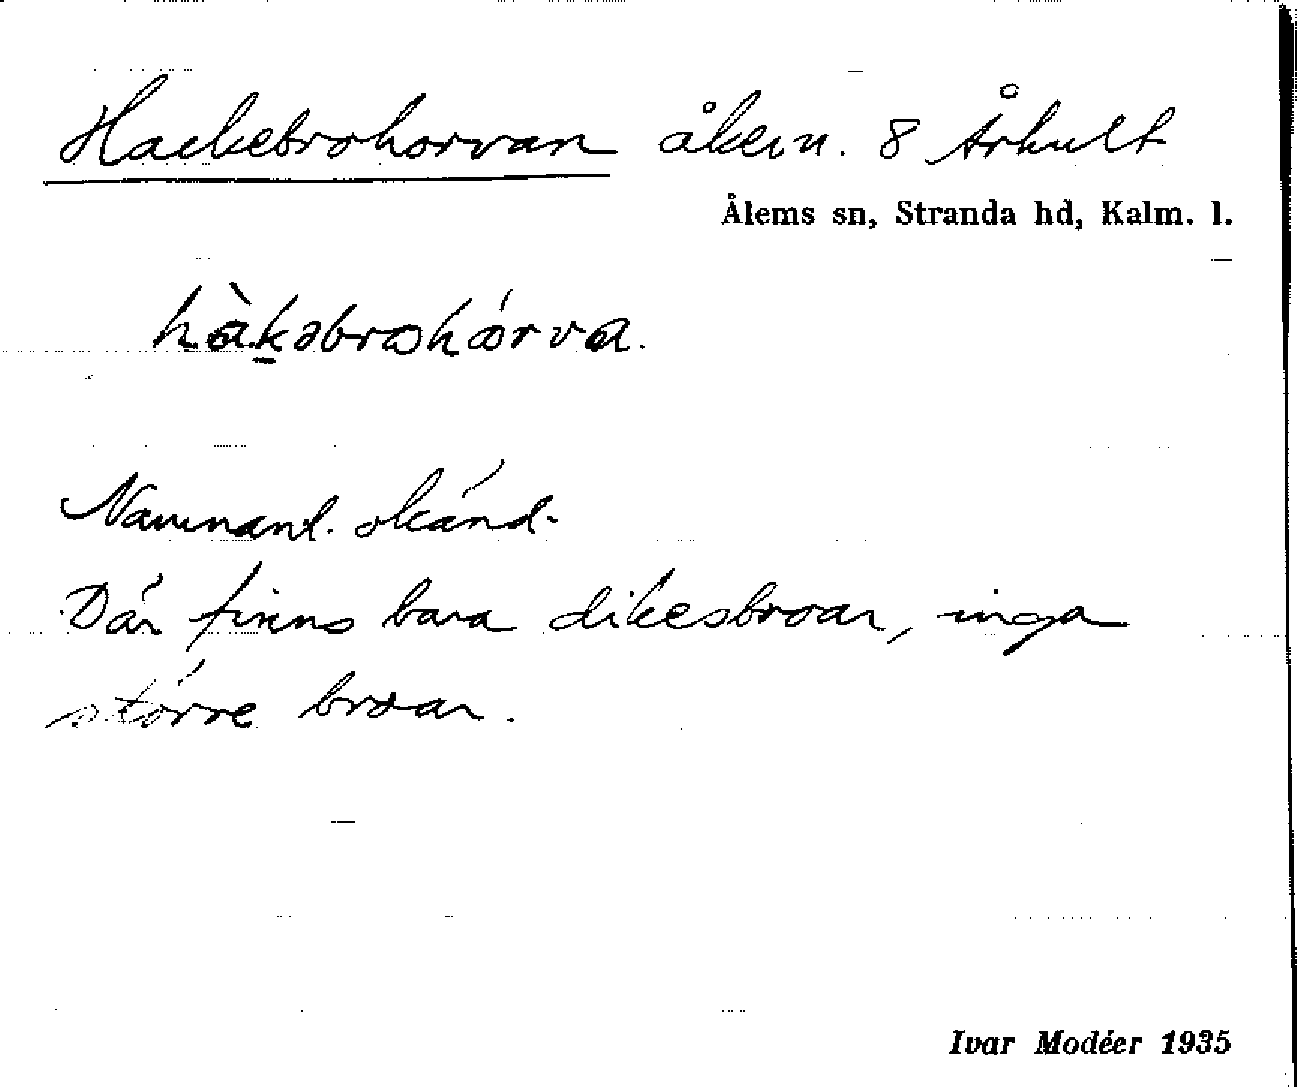 Hackebrohorvan åkern. 8 Århult
Ålems sn, Stranda hd, Kalm. l.
hàkəbrohórva.
Namnanl. okänd.
Där finns bara dikesbroar, inga
större broar.
Ivar Modéer 1935